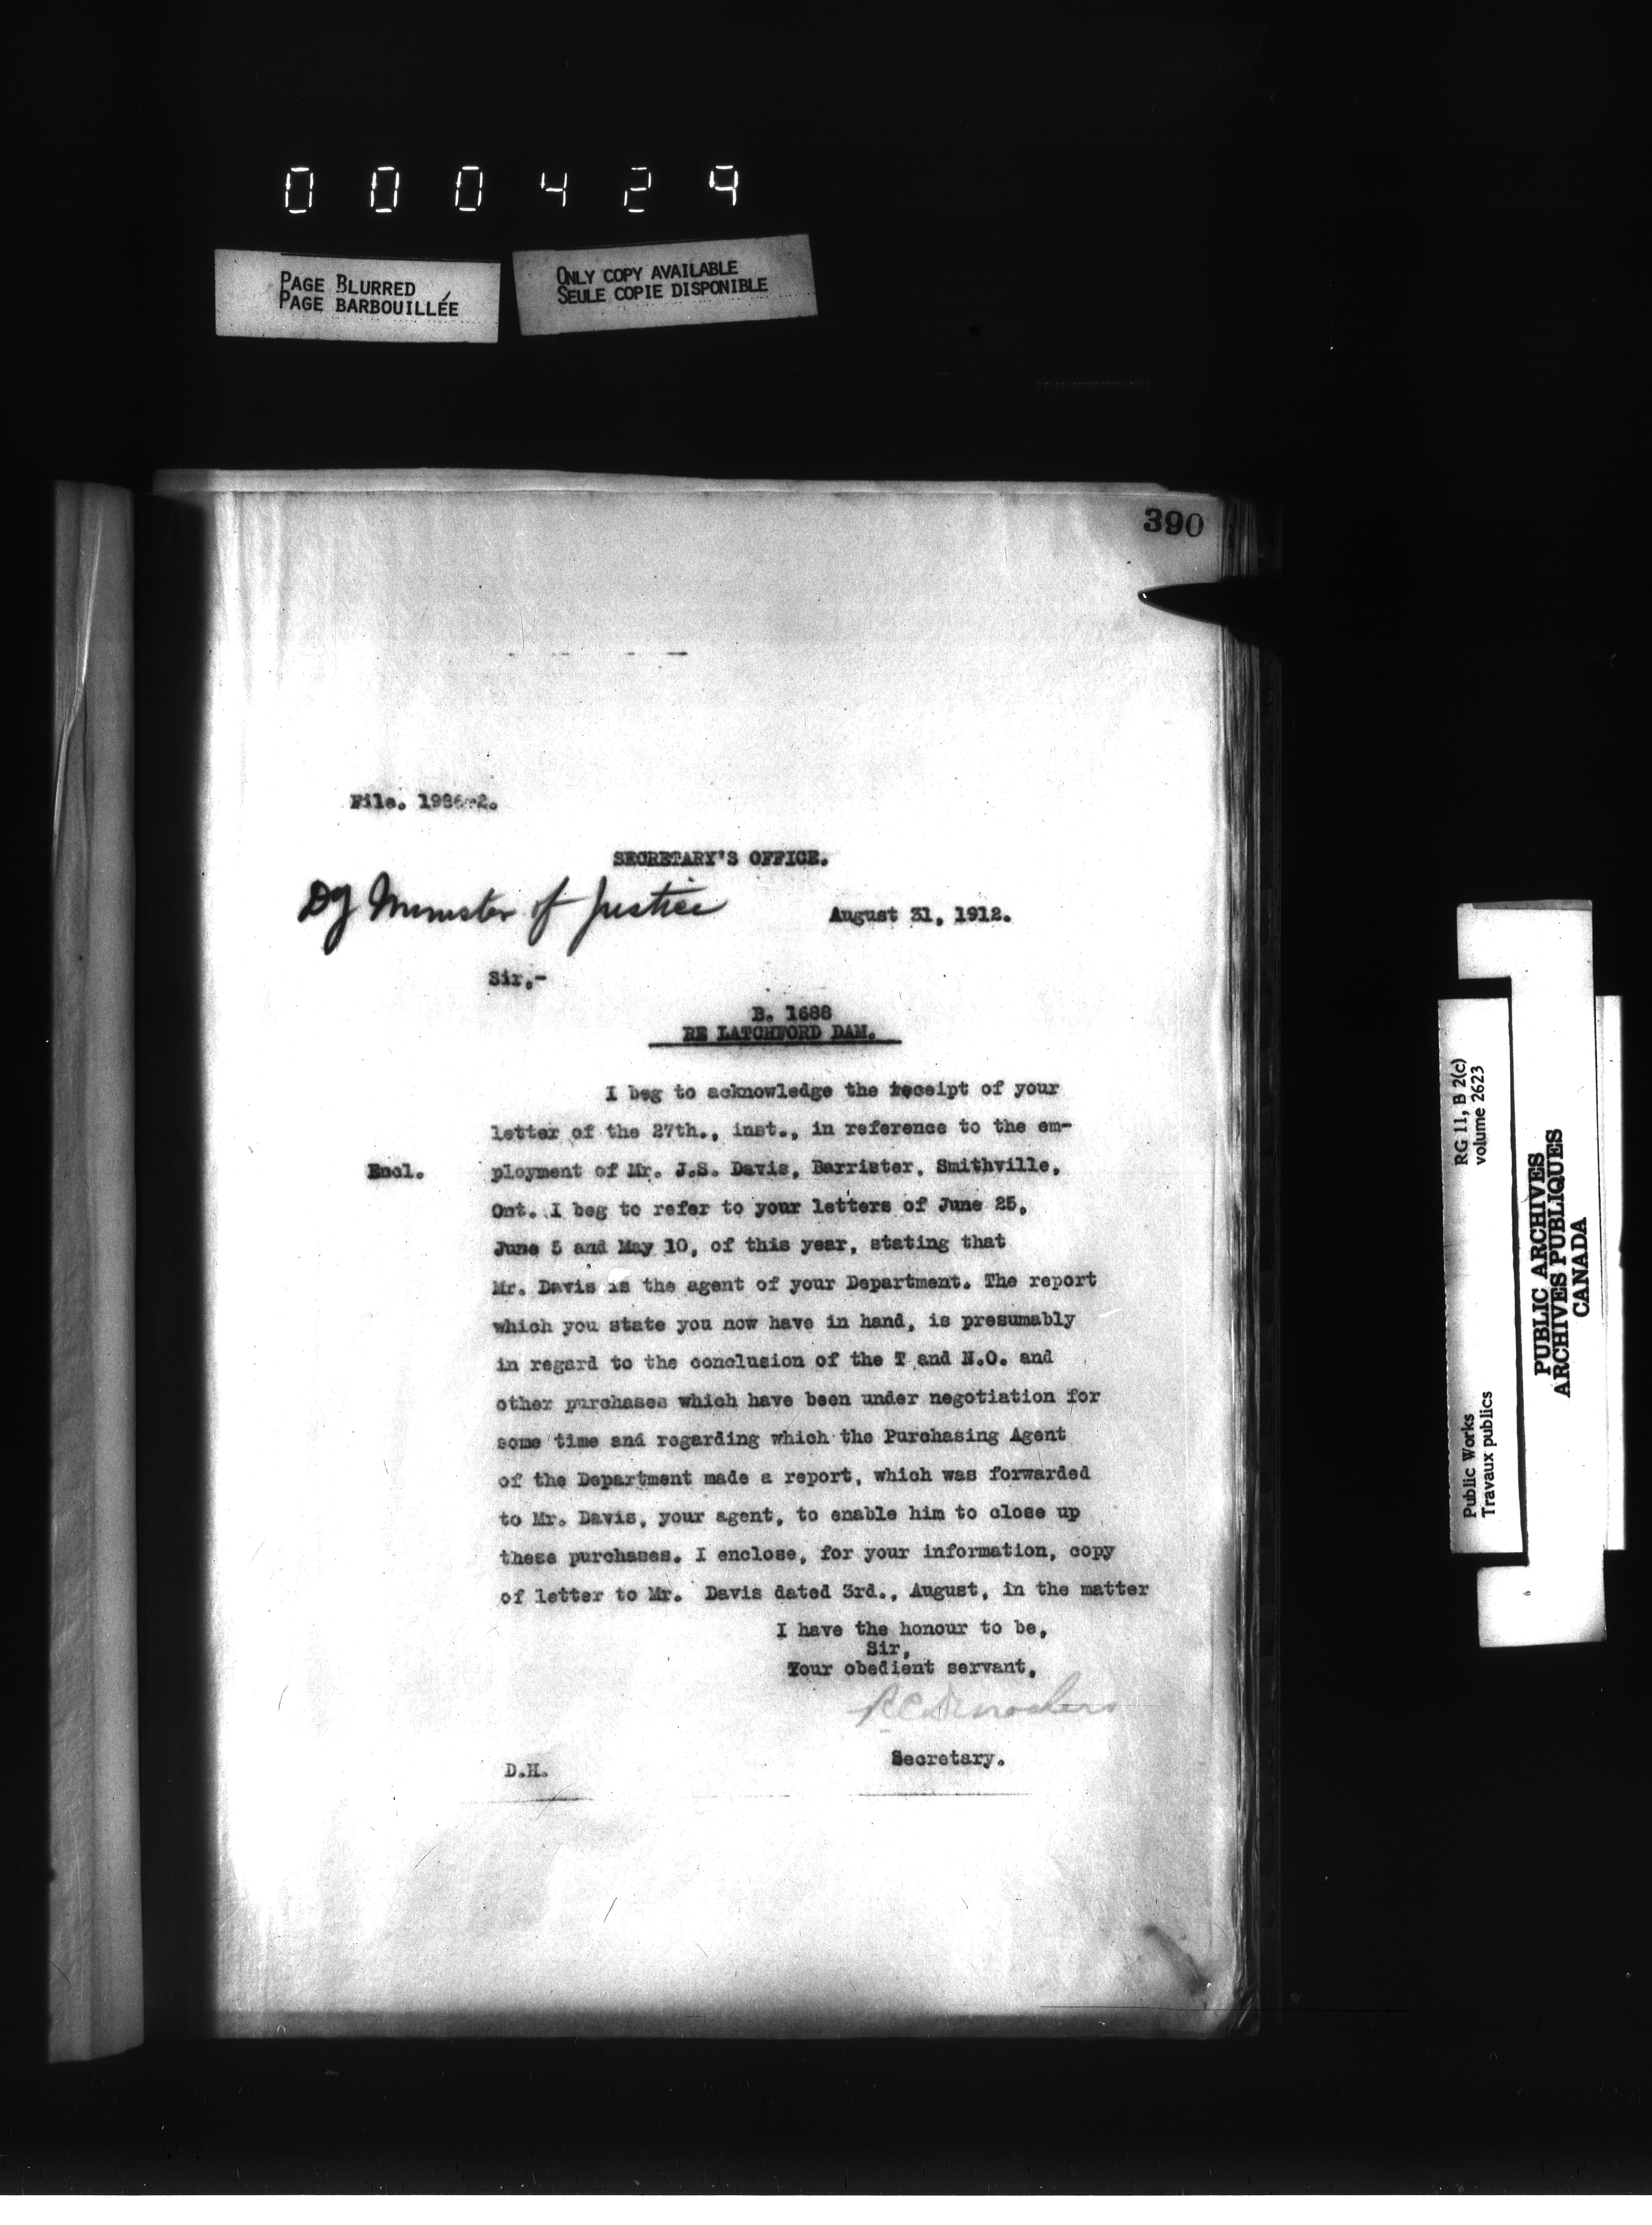 000429
PAGE BLURRED
PAGE BARBOUILLÉE
ONLY COPY AVAILABLE
SEULE COPIE DISPONIBLE
390
File. 1986-2.
SECRETARY'S OFFICE.
Dy Minister of Justice
August 31, 1912.
Sir,-
B. 1688
RE LATCHFORD DAM.
I beg to acknowledge the receipt of your
letter of the 27th., inst., in reference to the em-
Encl.
ployment of Mr. J.S. Davis, Barrister, Smithville,
Ont. I beg to refer to your letters of June 25,
June 5 and May 10, of this year, stating that
Mr. Davis is the agent of your Department. The report
which you state you now have in hand, is presumably
in regard to the conclusion of the T and N.O. and
other purchases which have been under negotiation for
some time and regarding which the Purchasing Agent
of the Department made a report, which was forwarded
to Mr. Davis, your agent, to enable him to close up
these purchases. I enclose, for your information, copy
of letter to Mr. Davis dated 3rd., August, in the matter
I have the honour to be,
Sir,
Your obedient servant,
Secretary.
D.H.
RG 11, B 2(c)
volume 2623
Public Works
Travaux publics
PUBLIC ARCHIVES
ARCHIVES PUBLIQUES
CANADA